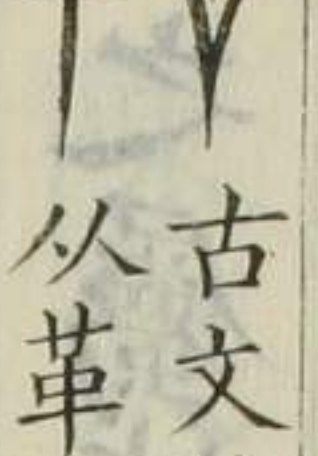 古文
从革